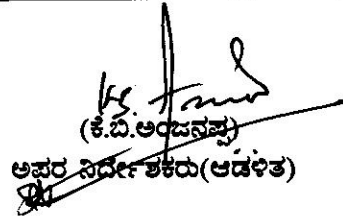 (ಕೆ.ಬಿ.ಅಂಜನಪ್ಪ)
ಅಪರ ನಿರ್ದೇಶಕರು(ಆಡಳಿತ)